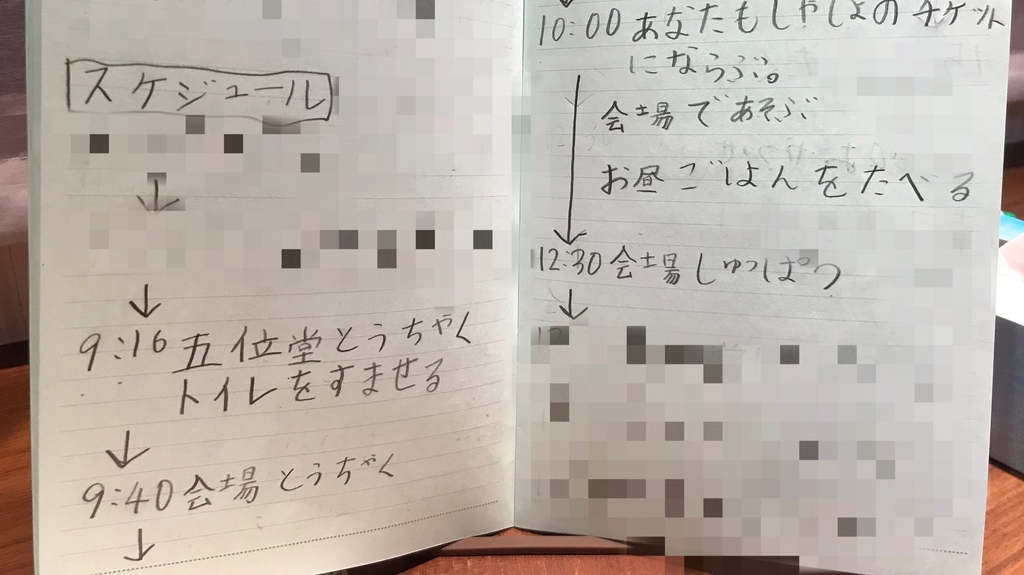 スケジュール
↓
↓
9:16 五位堂とうちゃく
トイレをすませる
↓
9:40 会場とうちゃく
↓
10:00 あなたもしゃしょのチケット
にならぶ。
会場であそぶ
お昼ごはんをたべる
↓
12:30 会場しゅっぱつ
↓